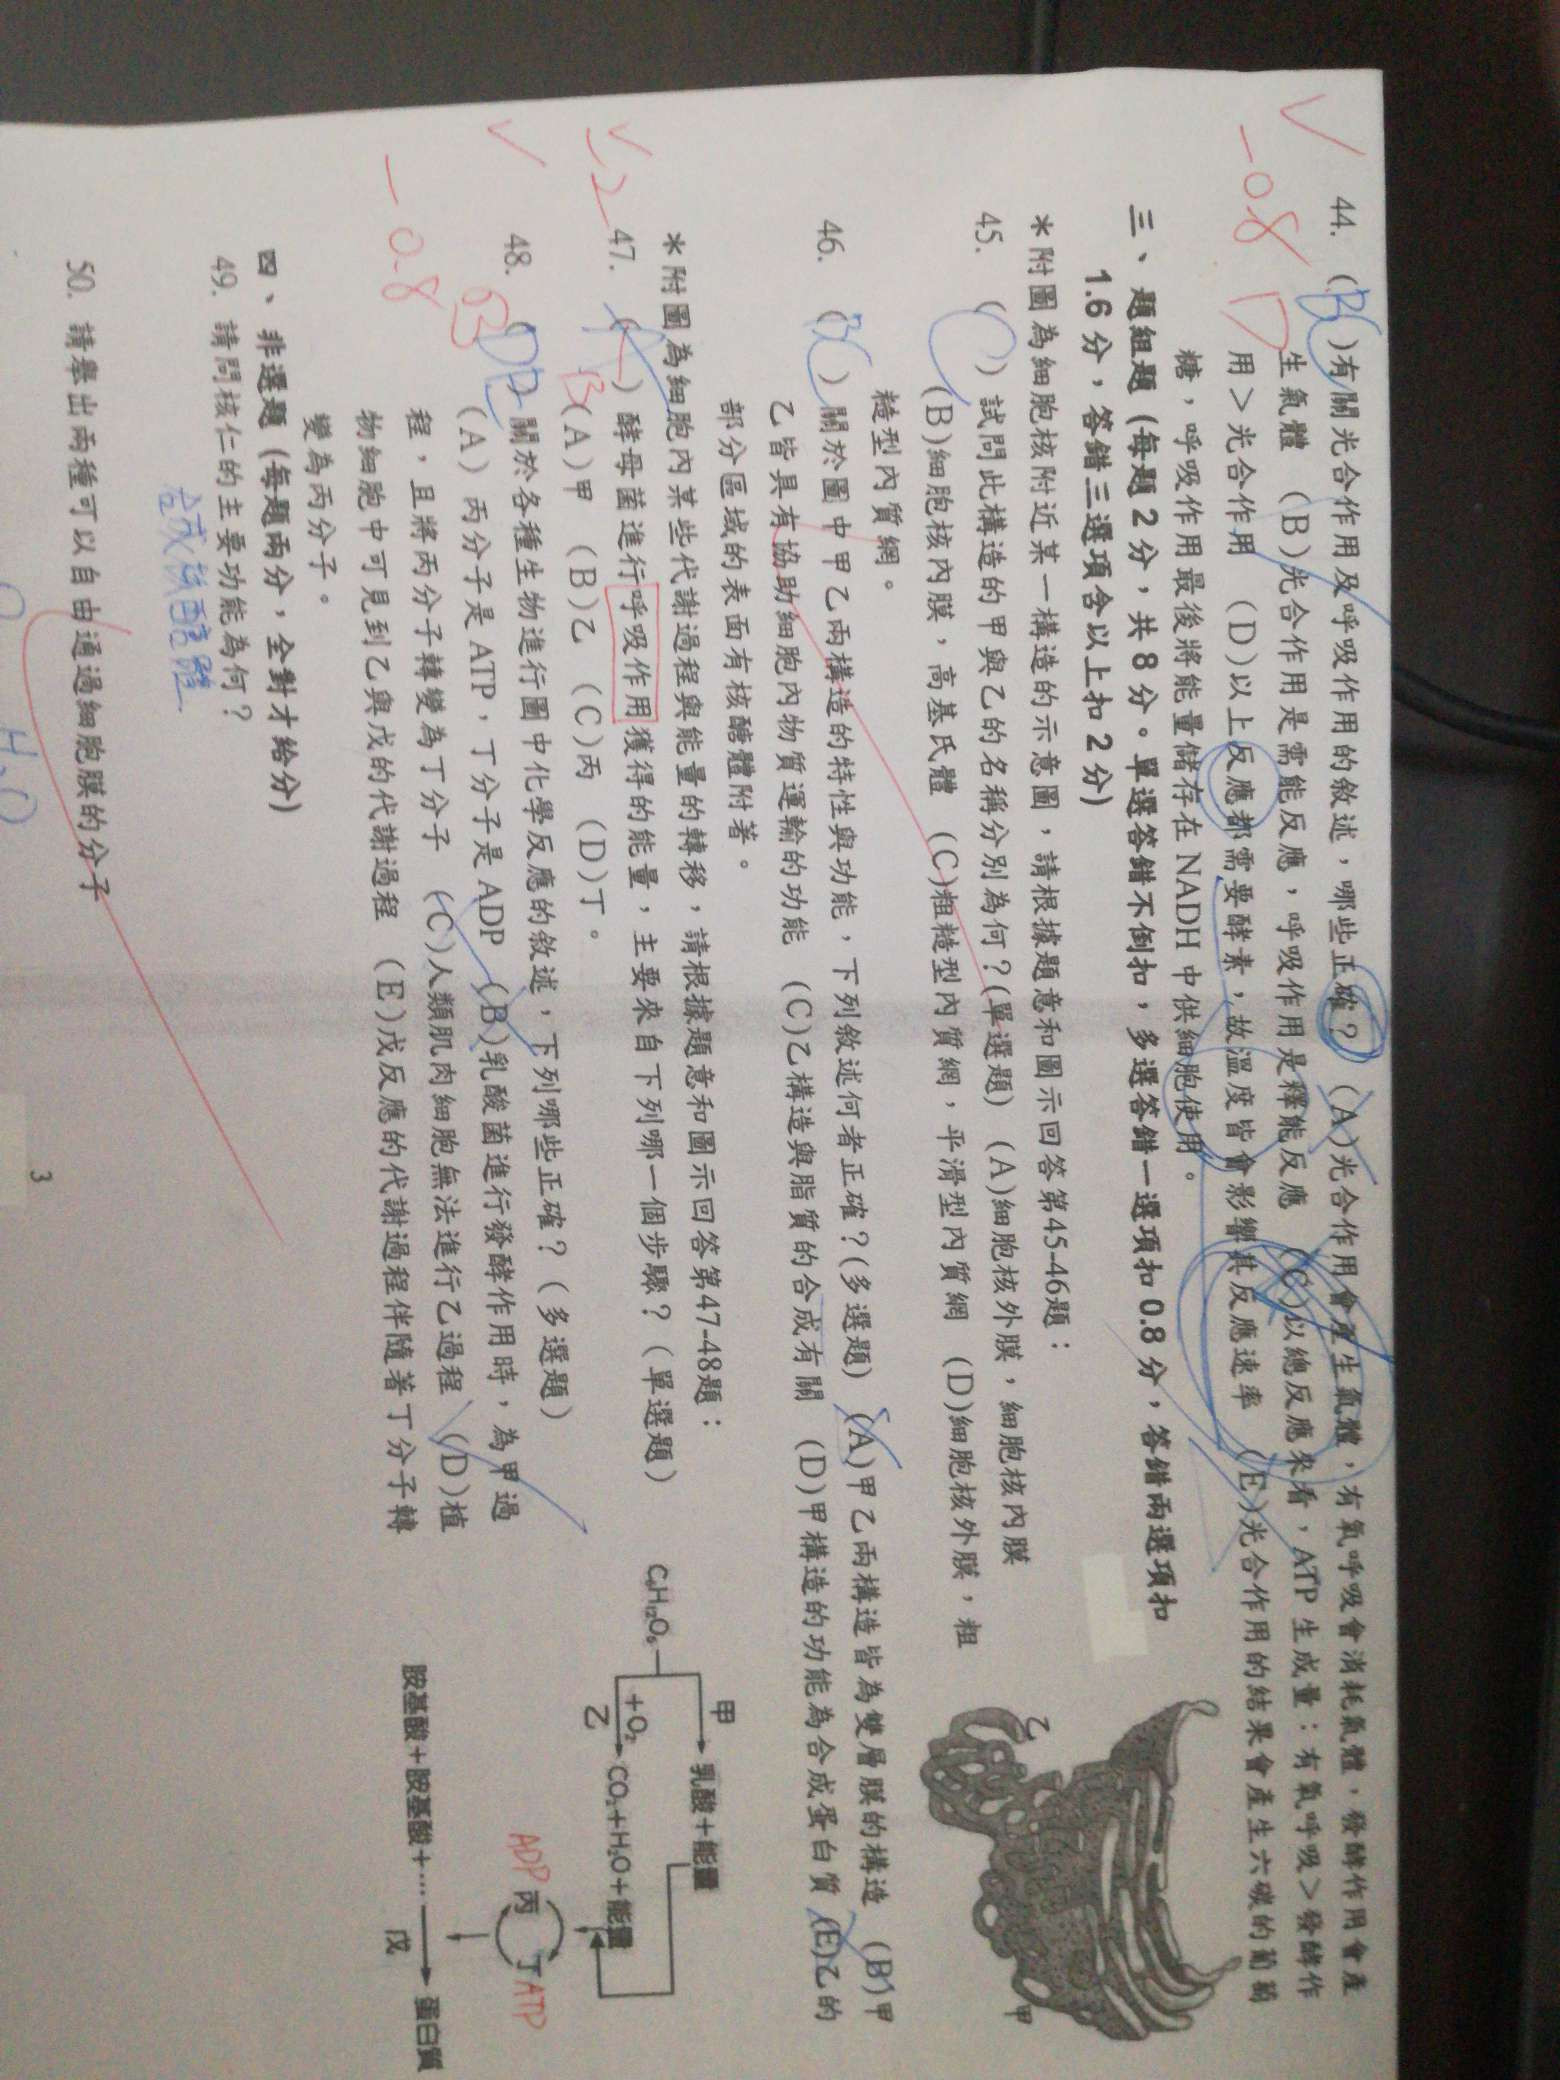 44. (BC)有關光合作用及呼吸作用的敘述，哪些正確？ (A)光合作用會產生氣體，有氧呼吸會消耗氣體，發酵作用會產
生氣體 (B)光合作用是需能反應，呼吸作用是釋能反應 (C)以總反應來看，ATP 生成量：有氧呼吸＞發酵作
用＞光合作用 (D)以上反應都需要酵素，故溫度皆會影響其反應速率 (E)光合作用的結果會產生六碳的葡萄
糖，呼吸作用最後將能量儲存在 NADH 中供細胞使用。
-0.8
D
三、題組題 (每題 2 分，共 8 分。單選答錯不倒扣，多選答錯一選項扣 0.8 分，答錯兩選項扣
1.6 分，答錯三選項含以上扣 2 分)
＊附圖為細胞核附近某一構造的示意圖，請根據題意和圖示回答第45-46題：
45. (C) 試問此構造的甲與乙的名稱分別為何？(單選題) (A)細胞核外膜，細胞核內膜
(B)細胞核內膜，高基氏體 (C)粗糙型內質網，平滑型內質網 (D)細胞核外膜，粗
糙型內質網。
46. (BC) 關於圖中甲乙兩構造的特性與功能，下列敘述何者正確？(多選題) (A)甲乙兩構造皆為雙層膜的構造 (B)甲
乙皆具有協助細胞內物質運輸的功能 (C)乙構造與脂質的合成有關 (D)甲構造的功能為合成蛋白質 (E)乙的
部分區域的表面有核醣體附著。
乙
甲
＊附圖為細胞內某些代謝過程與能量的轉移，請根據題意和圖示回答第47-48題：
47. ( ) 酵母菌進行呼吸作用獲得的能量，主要來自下列哪一個步驟？（單選題）
(A)甲 (B)乙 (C)丙 (D)丁。
-2
B
48. (DE) 關於各種生物進行圖中化學反應的敘述，下列哪些正確？（多選題）
(A) 丙分子是 ATP，丁分子是 ADP (B)乳酸菌進行發酵作用時，為甲過
程，且將丙分子轉變為丁分子 (C)人類肌肉細胞無法進行乙過程 (D)植
物細胞中可見到乙與戊的代謝過程 (E)戊反應的代謝過程伴隨著丁分子轉
變為丙分子。
-0.8
B
甲
乳酸＋能量
C₆H₁₂O₆
＋O₂
乙
CO₂＋H₂O＋能量
ADP 丙
丁 ATP
胺基酸＋胺基酸＋…
戊
蛋白質
四、非選題 (每題兩分，全對才給分)
49. 請問核仁的主要功能為何？
合成核醣體
50. 請舉出兩種可以自由通過細胞膜的分子
H₂O
3